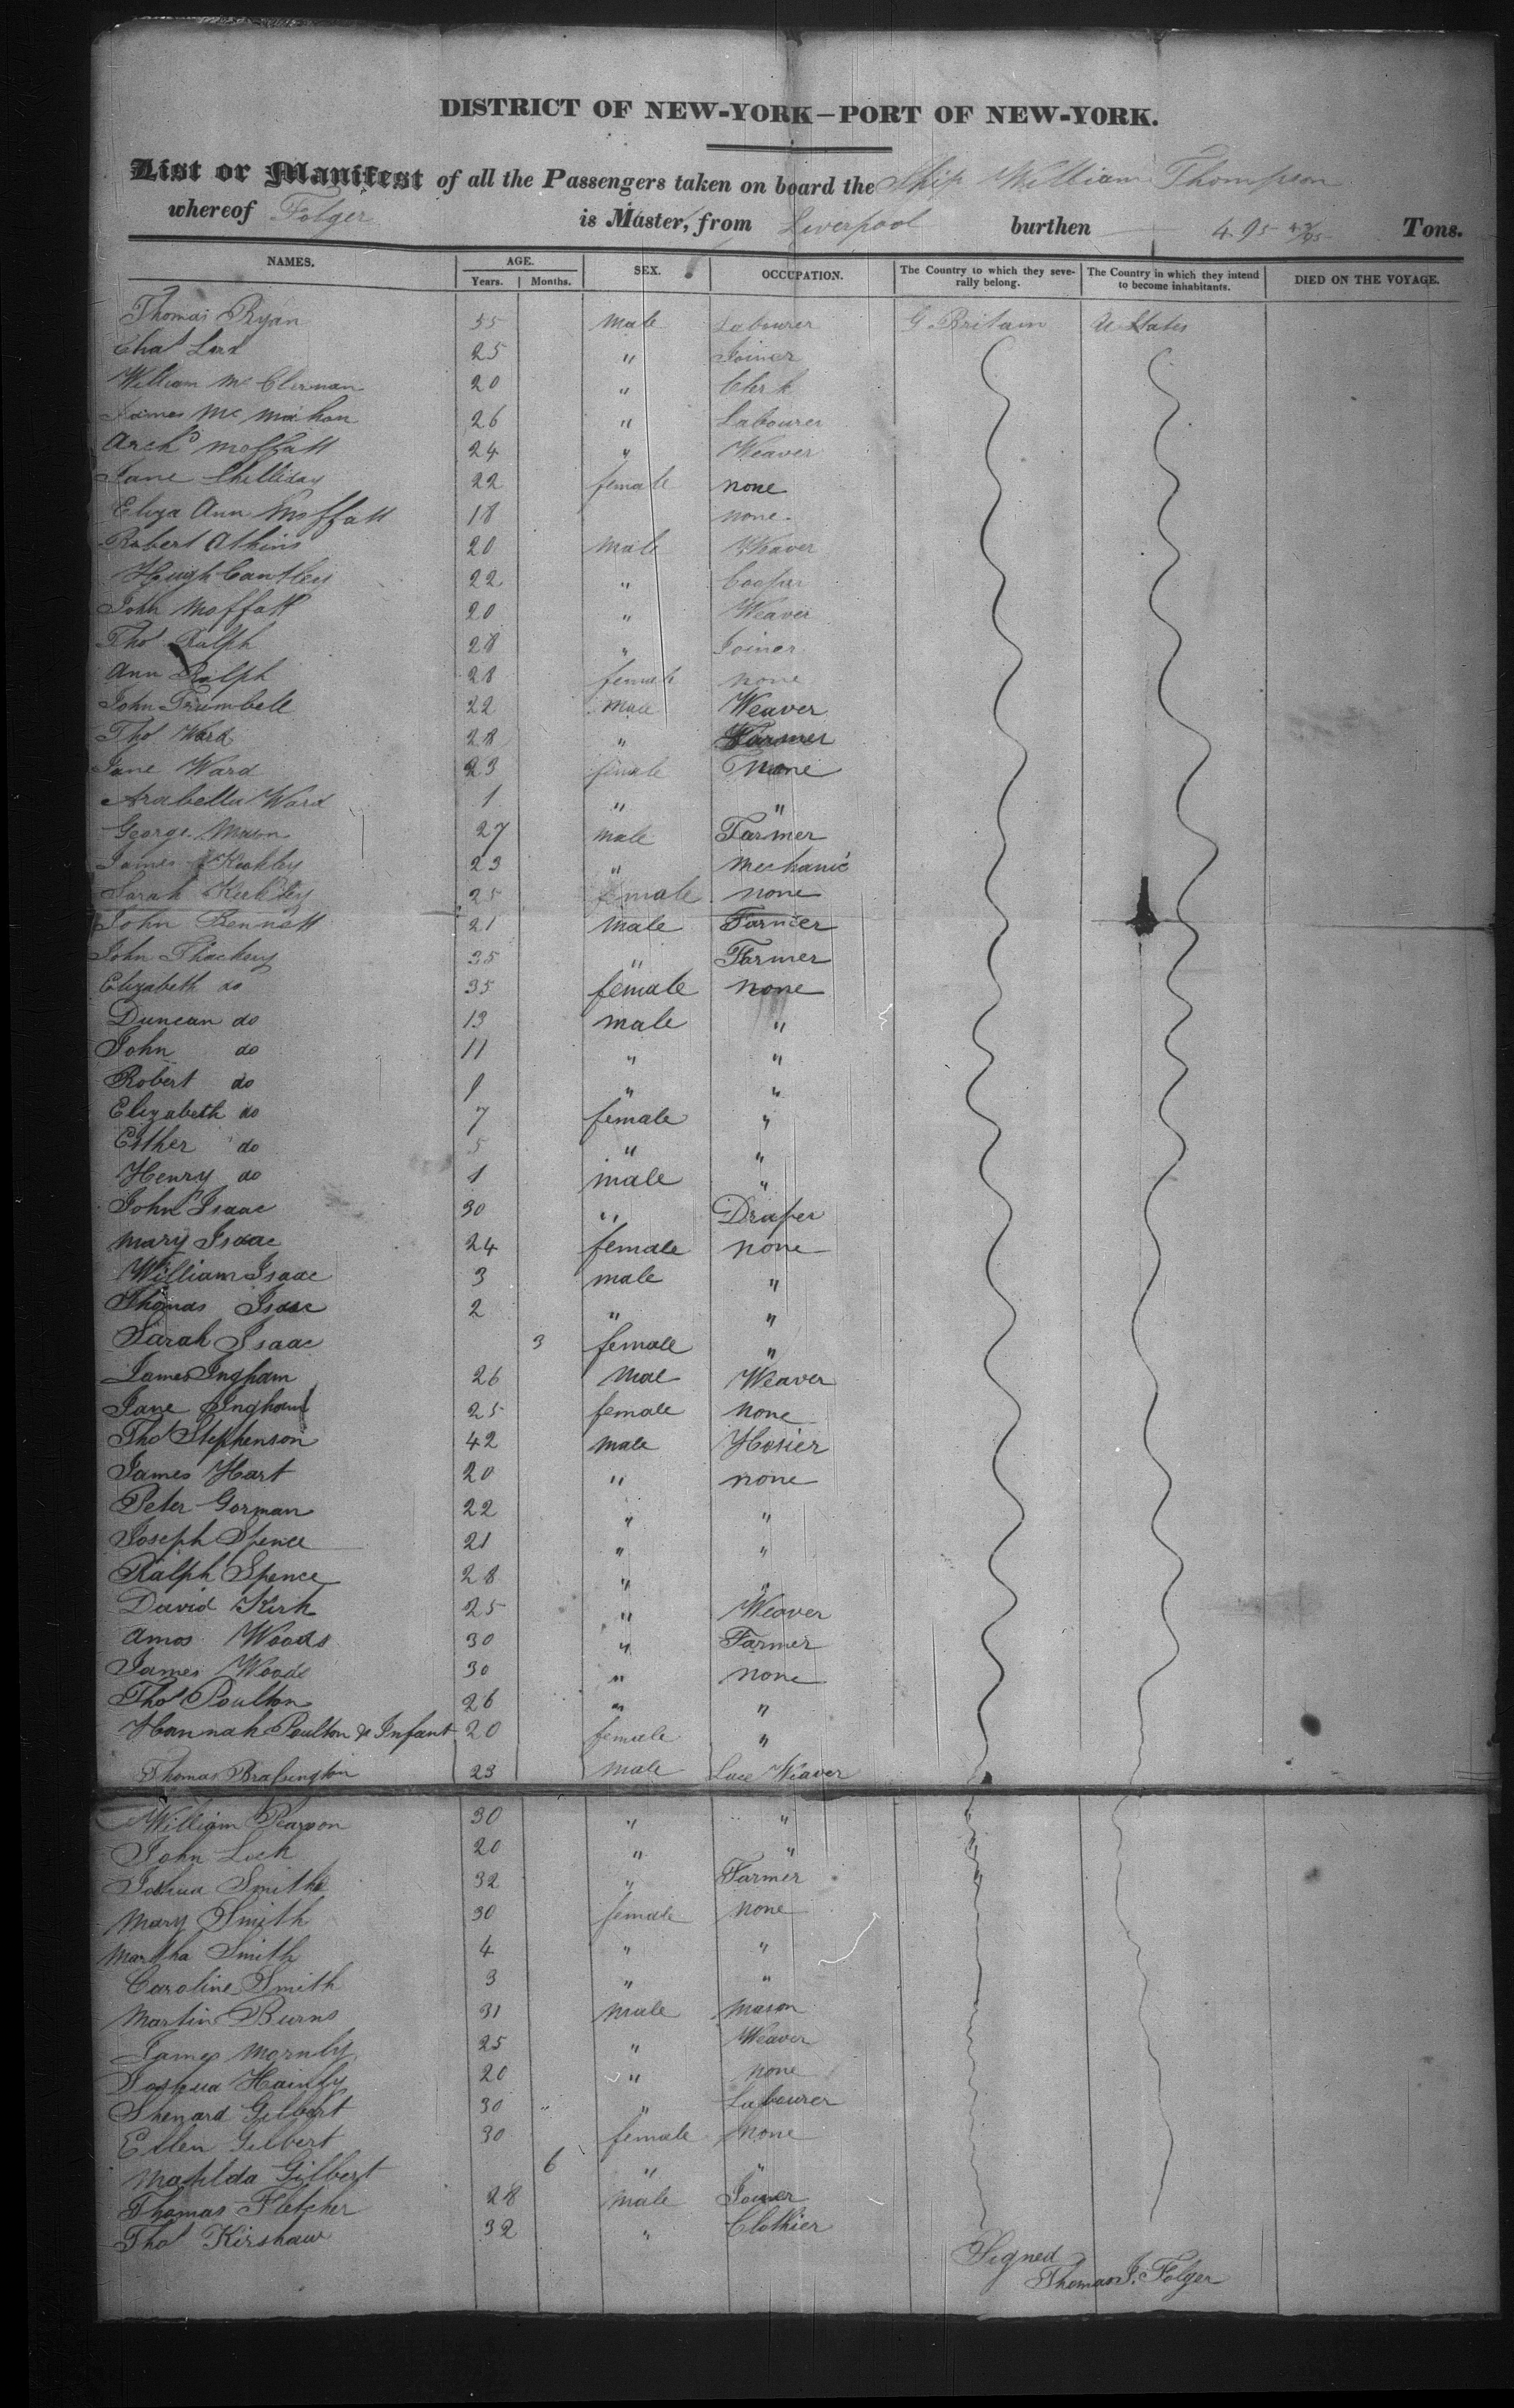 DISTRICT OF NEW-YORK—PORT OF NEW-YORK.
List or Manifest of all the Passengers taken on board the Ship William Thompson
whereof Folger is Master, from Liverpool burthen 495 Tons.
NAMES. AGE. Years. Months. SEX. OCCUPATION. The Country to which they severally belong. The Country in which they intend to become inhabitants. DIED ON THE VOYAGE.
Thomas Ryan 35 male Labourer G. Britain U States
Chas Lord 25 " Joiner
William Mc Clernan 20 " Clerk
James Mc Mahon 26 " Labourer
Archd Moffatt 24 " Weaver
Jane Chelliday 22 female none
Eliza Ann Moffatt 18 none
Robert Atkins 20 male Weaver
Hugh Cantley 22 " Cooper
John Moffatt 20 " Weaver
Thos Ralph 28 " Joiner
Ann Ralph 28 female none
John Trumbell 22 male Weaver
Thos Ward 28 " Farmer
Jane Ward 23 female None
Arabella Ward 1 " "
George Mason 27 male Farmer
James Kirkby 23 " Mechanic
Sarah Kirkby 25 female none
John Bennett 21 male Farmer
John Thackery 35 " Farmer
Elizabeth do 35 female none
Duncan do 13 male "
John do 11 " "
Robert do 9 " "
Elizabeth do 7 female "
Esther do 5 " "
Henry do 1 male "
John Isaac 30 " Draper
Mary Isaac 24 female none
William Isaac 3 male "
Thomas Isaac 2 " "
Sarah Isaac 3 female "
James Ingham 26 Male Weaver
Jane Ingham 25 female none
Thos Stephenson 42 male Hosier
James Hart 20 " none
Peter Gorman 22 " "
Joseph Spence 21 " "
Ralph Spence 28 " "
David Kirk 25 " Weaver
Amos Woods 30 " Farmer
James Woods 30 " none
Thos Poulton 26 " "
Hannah Poulton & Infant 20 female "
Thomas Brassington 23 male Lace Weaver
William Pearson 30 " "
John Lock 20 " "
Joshua Smith 32 " Farmer
Mary Smith 30 female none
Martha Smith 4 " "
Caroline Smith 3 " "
Martin Burns 31 male Mason
James Mornby 25 " Weaver
Joshua Hainby 20 " none
Shenard Gilbert 30 " " Labourer
Ellen Gilbert 30 female None
Matilda Gilbert 6 " "
Thomas Fletcher 28 male Joiner
Thos Kirshaw 32 " Clothier
Signed
Thomas J. Folger